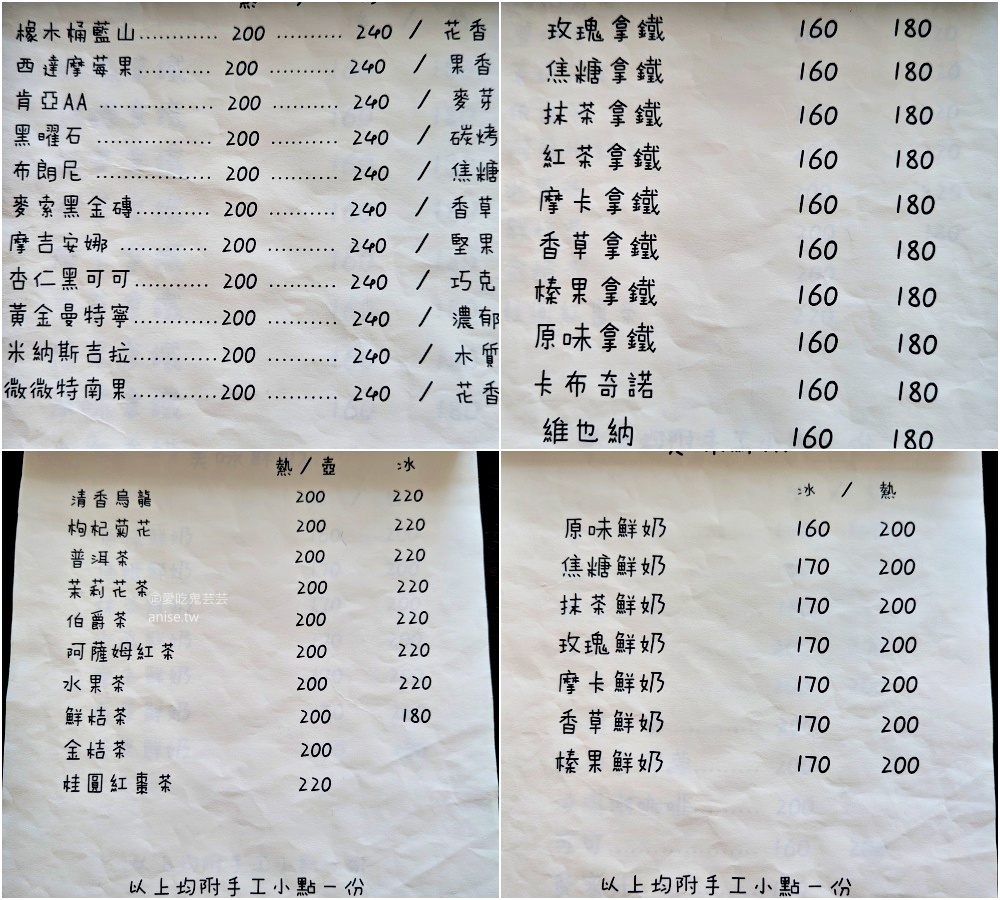 橡木桶藍山............ 200 .......... 240 / 花香
西達摩莓果............ 200 .......... 240 / 果香
肯亞AA .................. 200 .......... 240 / 麥芽
黑曜石 .................. 200 .......... 240 / 碳烤
布朗尼 .................. 200 .......... 240 / 焦糖
麥索黑金磚............ 200 .......... 240 / 香草
摩吉安娜 .............. 200 .......... 240 / 堅果
杏仁黑可可............ 200 .......... 240 / 巧克
黃金曼特寧............ 200 .......... 240 / 濃郁
米納斯吉拉............ 200 .......... 240 / 木質
微微特南果............ 200 .......... 240 / 花香
玫瑰拿鐵 160 180
焦糖拿鐵 160 180
抹茶拿鐵 160 180
紅茶拿鐵 160 180
摩卡拿鐵 160 180
香草拿鐵 160 180
榛果拿鐵 160 180
原味拿鐵 160 180
卡布奇諾 160 180
維也納 160 180
熱/壺 冰
清香烏龍 200 220
枸杞菊花 200 220
普洱茶 200 220
茉莉花茶 200 220
伯爵茶 200 220
阿薩姆紅茶 200 220
水果茶 200 220
鮮桔茶 200 180
金桔茶 200
桂圓紅棗茶 220
以上均附手工小點一份
@愛吃鬼芸芸
anise.tw
冰 / 熱
原味鮮奶 160 200
焦糖鮮奶 170 200
抹茶鮮奶 170 200
玫瑰鮮奶 170 200
摩卡鮮奶 170 200
香草鮮奶 170 200
榛果鮮奶 170 200
以上均附手工小點一份